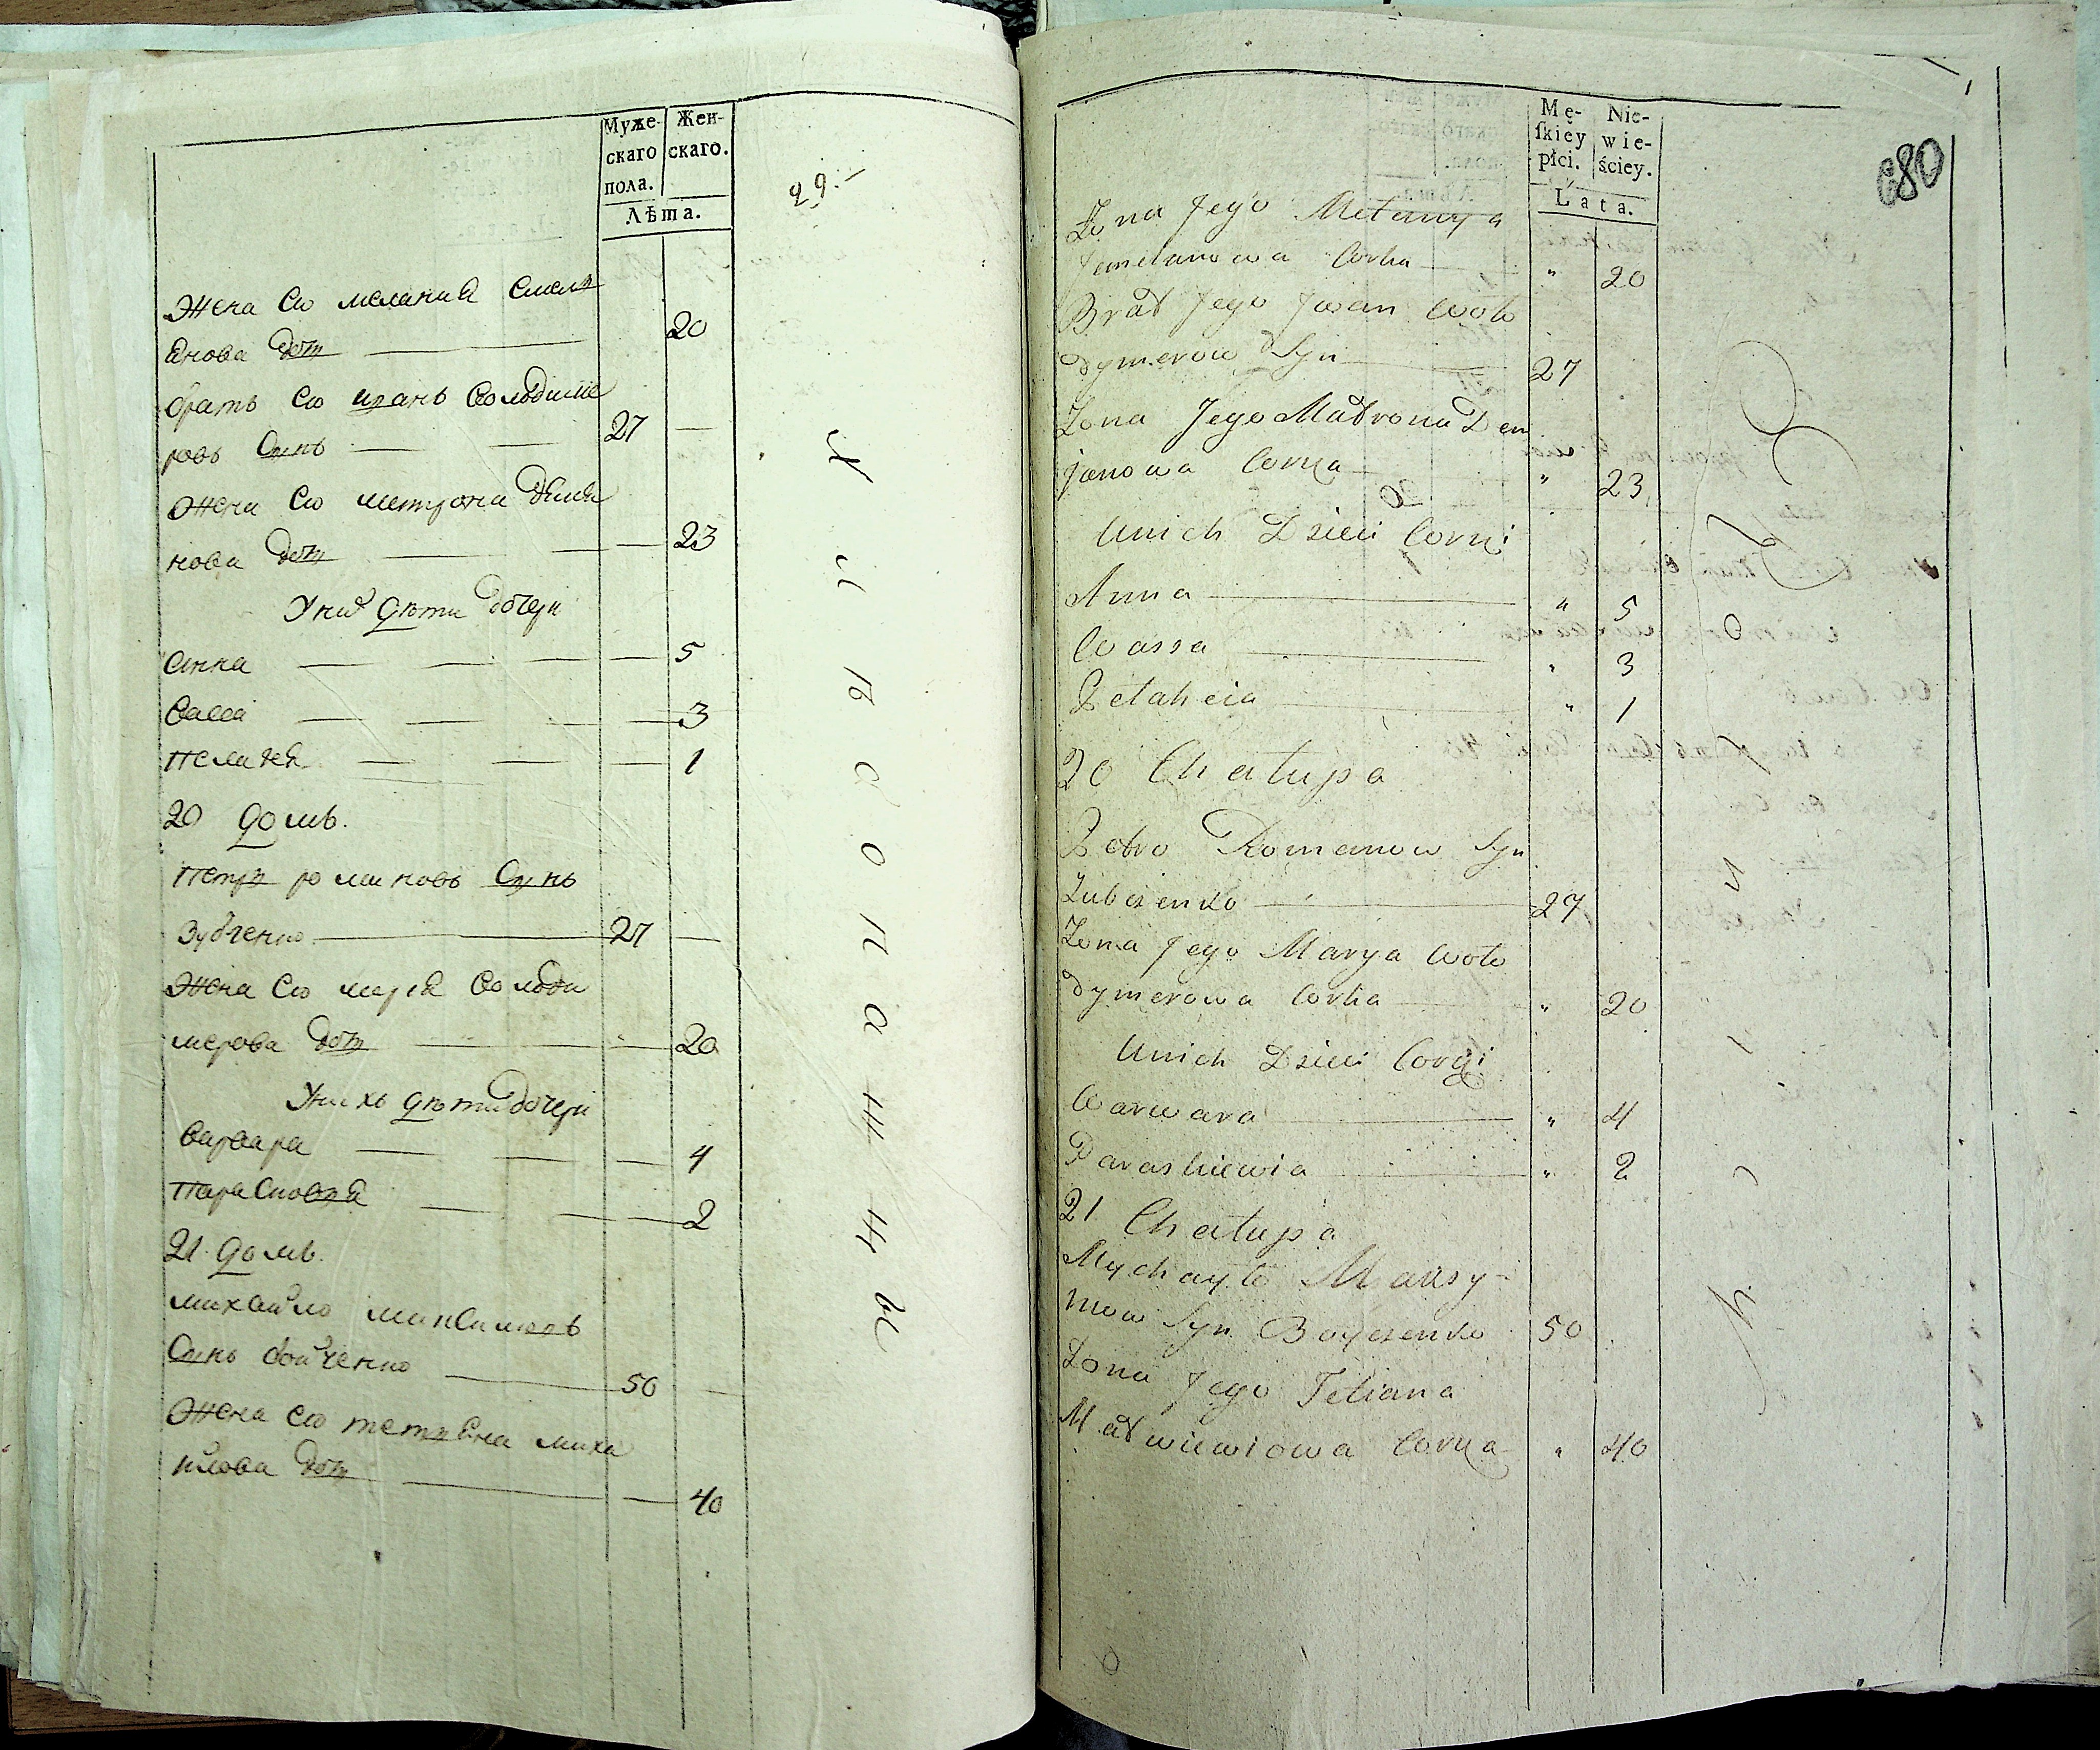 Муже-
скаго
пола.
Жен-
скаго.
Лѣта.
29.
Жена ево мелания емели
Янова доч 20
братъ ево иванъ володиме
ровъ Сынъ 27
Жена ево матрона демя
нова доч 23
Уних дѣти дочери
анна 5
васса 3
пелагея 1
20 домъ.
петръ романовъ Сынъ
Зубченко 27
Жена ево мария володи
мерова доч 20
Унихъ дѣти дочери
варвара 4
парасковия 2
21. домъ.
михайло максимовъ
Сынъ бойченко 50
Жена ево тетияна миха
йлова доч 40
680
Mę-
skiey
płci.
Nie-
wie-
ściey.
Lata.
Żona Jego Melanya
Jemelanowa Corka " 20
Brat Jego Jwan Woło
dymerow Syn 27
Żona Jego Matrona Dem
janowa Corka " 23
Unich Dzieci Corki
Anna " 5
Wassa " 3
Pelaheia " 1
20 Chałupa
Petro Romanow Syn
Zubczenko 27
Żona Jego Marya Woło
dymerowa Corka " 20
Unich Dzieci Corki
Warwara " 4
Paraskiewia " 2
21 Chałupa
Mychayło Maksy-
mow Syn Boyczenko 50
Żona Jego Tetiana
Matwiewiowa Corka " 40